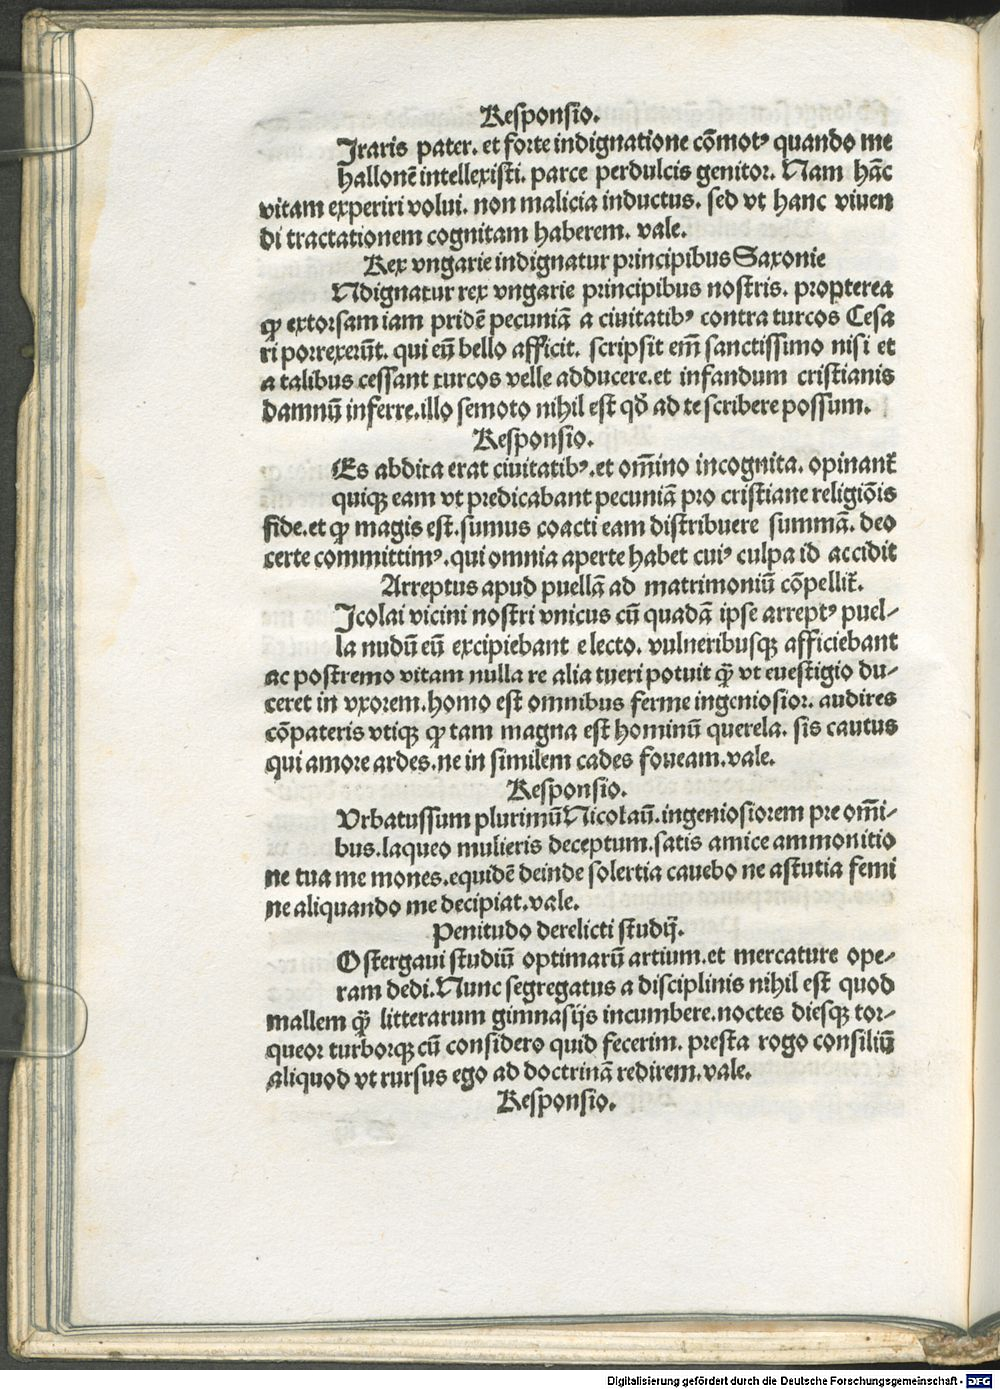 Responsio.
Jraris pater. et forte indignatione cōmotꝰ quando me
hallonē intellexisti. parce perdulcis genitor. Nam hāc
vitam experiri volui. non malicia inductus. sed vt hanc viuen
di tractationem cognitam haberem. vale.
Rex vngarie indignatur principibus Saxonie
Ndignatur rex vngarie principibus nostris. propterea
ꝙ extorsam iam pridē pecuniā a ciuitatibꝰ contra turcos Cesa
ri porrexerūt. qui eū bello afficit. scripsit em̄ sanctissimo nisi et
a talibus cessant turcos velle adducere. et infandum cristianis
damnū inferre. illo semoto nihil est qđ ad te scribere possum.
Responsio.
Es abdita erat ciuitatibꝰ. et om̄ino incognita. opinant̄
quiqꝫ eam vt predicabant pecuniā pro cristiane religiōis
fide. et ꝙ magis est. sumus coacti eam distribuere summā. deo
certe committimꝰ. qui omnia aperte habet cuiꝰ culpa id accidit
Arreptus apud puellā ad matrimoniū cōpellit̄.
Jcolai vicini nostri vnicus cū quadā ipse arreptꝰ puel-
la nudū eū excipiebant e lecto. vulneribusqꝫ afficiebant
ac postremo vitam nulla re alia tueri potuit ꝙ̄ vt euestigio du-
ceret in vxorem. homo est omnibus ferme ingeniosior. audires
cōpateris vtiqꝫ ꝙ tam magna est hominū querela. sis cautus
qui amore ardes. ne in similem cades foueam. vale.
Responsio.
Vrbatussum plurimū Nicolaū. ingeniosiorem pre om̄i-
bus. laqueo mulieris deceptum. satis amice ammonitio
ne tua me mones. equidē deinde solertia cauebo ne astutia femi
ne aliquando me decipiat. vale.
Penitudo derelicti studij.
Ostergaui studiū optimarū artium. et mercature ope-
ram dedi. Nunc segregatus a disciplinis nihil est quod
mallem ꝙ̄ litterarum gimnasijs incumbere. noctes diesqꝫ tor-
queor turborqꝫ cū considero quid fecerim. presta rogo consiliū
aliquod vt rursus ego ad doctrinā redirem. vale.
Responsio.
Digitalisierung gefördert durch die Deutsche Forschungsgemeinschaft - DFG